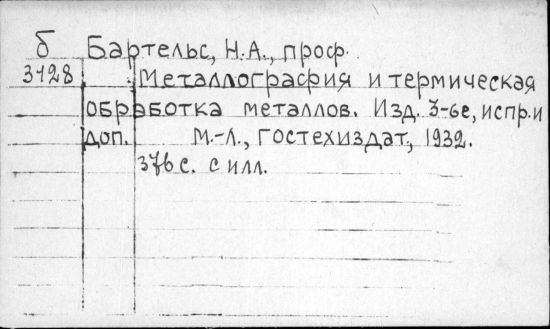 б Бартельс, Н.А., проф.
3128 Металлография и термическая
обработка металлов. Изд. 3-ье, испр. и
доп. М.-Л., Гостехиздат, 1932.
376 с. с илл.